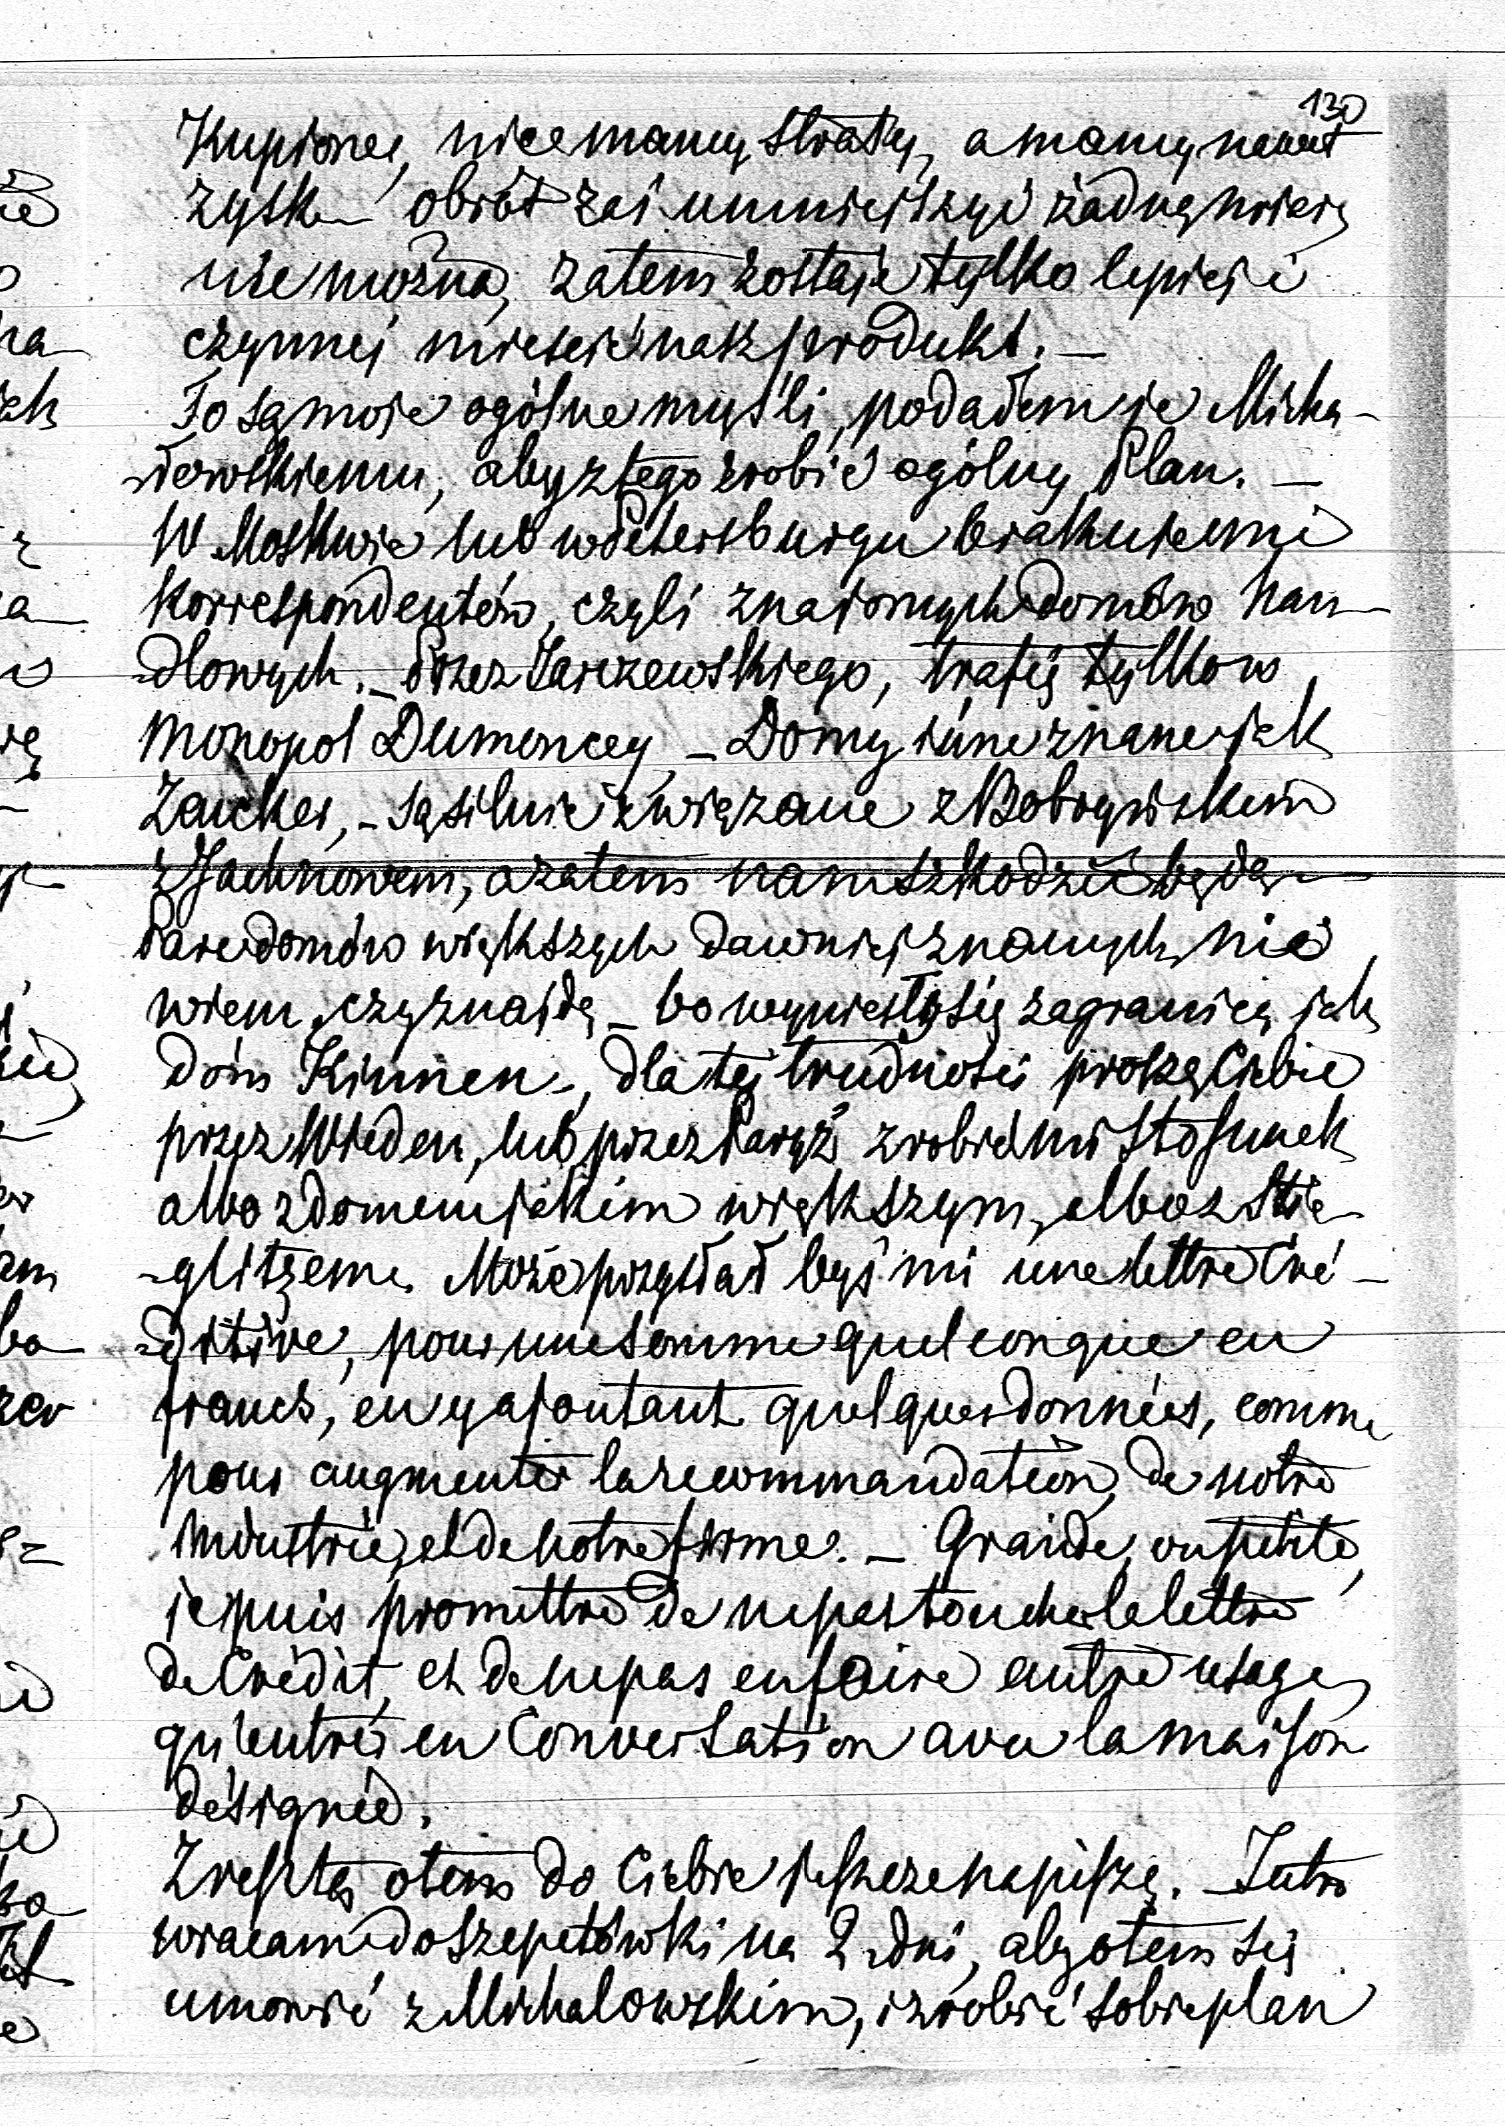 130
Kupionej, nie mamy straty, a mamy nawet
zysk – obrót zaś umniejszyć żadną miarą
nie można, zatem zostaje tylko lepiej i
czynniej mieścić nasz produkt. –
To są moje ogólne myśli, podałem je Micha-
-łowskiemu, aby z tego zrobić ogólny Plan. –
W Moskwie lub w Petersburgu brakuje mi
Korrespondentów, czyli znajomych domów han-
-dlowych. – Przez Jarczewskiego, trafię tylko w
monopol Dumoncey – Domy inne znane jak
Zaucker, – są silnie związane z Bobryńskim
z Jachnowem, a zatem nam szkodzić będą –
Parę domów większych dawniej znanych, nie
wiem czy znajdę – bo wyniosły się zagranicę jak
dom Kinnen –, dla tej trudności proszę Ciebie
przez Wieden, lub przez Paryż zrobić mi stosunek
albo z domem jakim większym, albo z Stie-
-glitzem. Może przysłał byś mi une lettre Cré-
-ditive, pour une somme quelconque en
francs, en y ajoutant quelques données, comme
pour augmenter la recommandation, de notre
industrie, et de notre firme. – Grande, ou petite,
je puis promettre de ne pas toucher la lettre
de Crédit, et de ne pas en faire autre usage,
qu'entrer en Conversation avec la maison
désignée.
Zresztą o tem do Ciebie jeszcze napiszę. – Jutro
wracam do Szepetówki na 2 dni, aby o tem się
umówić z Michałowskim, i zrobić sobie plan